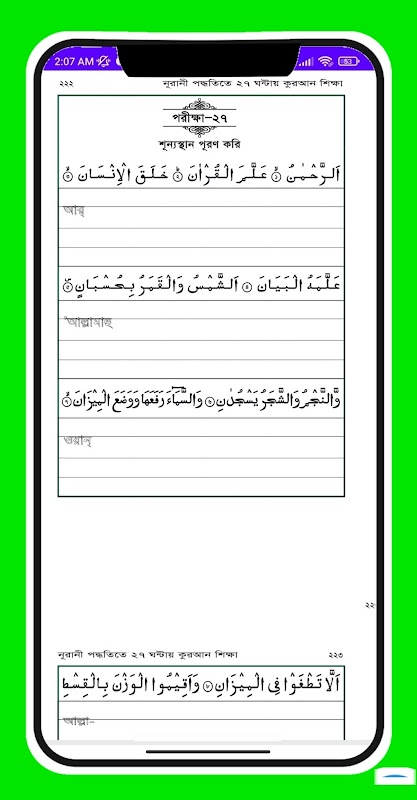 2:07 AM
53
২২২ নূরানী পদ্ধতিতে ২৭ ঘন্টায় কুরআন শিক্ষা
পরীক্ষা-২৭
শূন্যস্থান পূরণ করি
اَلرَّحْمٰنُ ۙ۝١ عَلَّمَ الْقُرْاٰنَ ۭ۝٢ خَلَقَ الْاِنْسَانَ ۙ۝٣
আর্
عَلَّمَهُ الْبَيَانَ ۝٤ اَلشَّمْسُ وَالْقَمَرُ بِحُسْبَانٍ ۪۝٥
'আল্লামাহু
وَّالنَّجْمُ وَالشَّجَرُ يَسْجُدٰنِ ۝٦ وَالسَّمَآءَ رَفَعَهَا وَوَضَعَ الْمِيْزَانَ ۙ۝٧
ওয়ান্
২২
নূরানী পদ্ধতিতে ২৭ ঘন্টায় কুরআন শিক্ষা ২২৩
اَلَّا تَطْغَوْا فِى الْمِيْزَانِ ۝٨ وَاَقِيْمُوا الْوَزْنَ بِالْقِسْطِ
আল্লা-